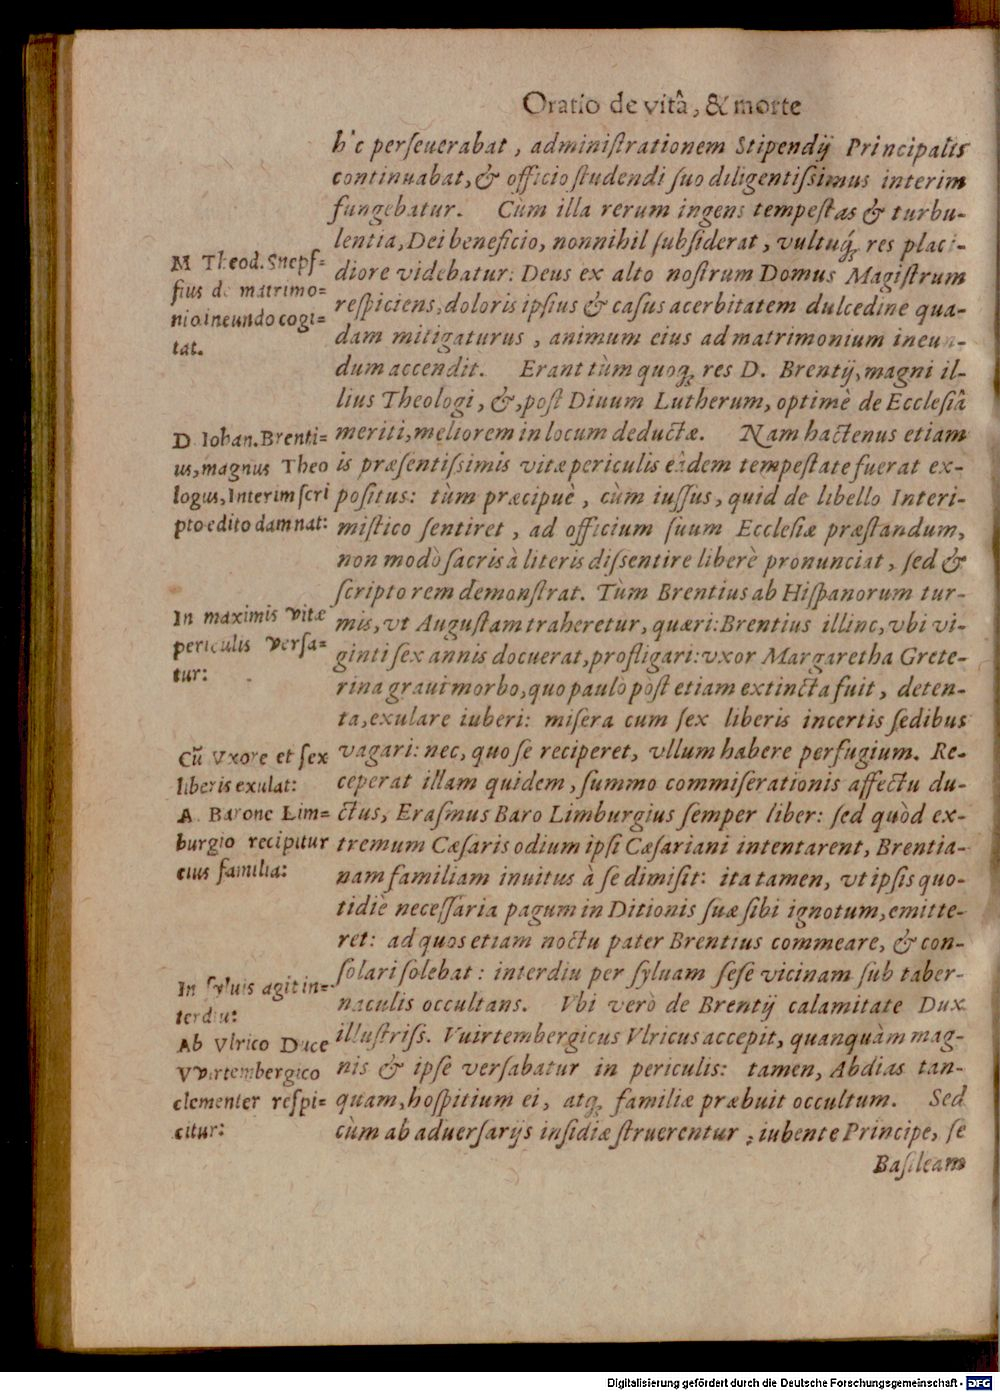 Oratio de vitâ, & morte
h c perſeuerabat, adminiſtrationem Stipendij Principalis
continuabat, & officio ſtudendi ſuo diligentiſsimus interim
fungebatur. Cùm illa rerum ingens tempeſtas & turbu-
lentia, Dei beneficio, nonnihil ſubſiderat, vultuq́ꝫ res placi-
diore videbatur: Deus ex alto noſtrum Domus Magiſtrum
reſpiciens, doloris ipſius & caſus acerbitatem dulcedine qua-
dam mitigaturus, animum eius ad matrimonium ineun-
dum accendit. Erant tùm quoqꝫ res D. Brentij, magni il-
lius Theologi, &, poſt Diuum Lutherum, optimè de Eccleſiâ
meriti, meliorem in locum deductæ. Nam hactenus etiam
is præſentiſsimis vitæ periculis eâdem tempeſtate fuerat ex-
poſitus: tùm præcipuè, cùm iuſſus, quid de libello Interi-
miſtico ſentiret, ad officium ſuum Eccleſiæ præſtandum,
non modò ſacris à literis diſsentire liberè pronunciat, ſed &
ſcripto rem demonſtrat. Tùm Brentius ab Hiſpanorum tur-
mis, vt Auguſtam traheretur, quæri: Brentius illinc, vbi vi-
ginti ſex annis docuerat, profligari: vxor Margaretha Grete-
rina graui morbo, quo paulò pòſt etiam extincta fuit, deten-
ta, exulare iuberi: miſera cum ſex liberis incertis ſedibus
vagari: nec, quo ſe reciperet, vllum habere perfugium. Re-
ceperat illam quidem, ſummo commiſerationis affectu du-
ctus, Eraſmus Baro Limburgius ſemper liber: ſed quòd ex-
tremum Cæſaris odium ipſi Cæſariani intentarent, Brentia-
nam familiam inuitus à ſe dimiſit: ita tamen, vt ipſis quo-
tidiè neceſſaria pagum in Ditionis ſuæ ſibi ignotum, emitte-
ret: ad quos etiam noctu pater Brentius commeare, & con-
ſolari ſolebat: interdiu per ſyluam ſeſe vicinam ſub taber-
naculis occultans. Vbi verò de Brentij calamitate Dux
illuſtriſs. Vuirtembergicus Vlricus accepit, quanquàm mag-
nis & ipſe verſabatur in periculis: tamen, Abdias tan-
quam, hoſpitium ei, atqꝫ familiæ præbuit occultum. Sed
cùm ab aduerſarijs inſidiæ ſtruerentur, iubente Principe, ſe
Baſileam
M Theod. Snepf=
fius de matrimo=
nio ineundo cogi=
tat.
D. Iohan. Brenti=
us, magnus Theo
logus, Interim ſcri
pto edito damnat:
In maximis vitæ
periculis verſa=
tur:
Cũ Vxore et ſex
liberis exulat:
A Barone Lim=
burgio recipitur
eius familia:
In ſyluis agit in=
terdiu:
Ab Vlrico Duce
VVirtembergico
clementer reſpi=
citur:
Digitalisierung gefördert durch die Deutsche Forschungsgemeinschaft - DFG